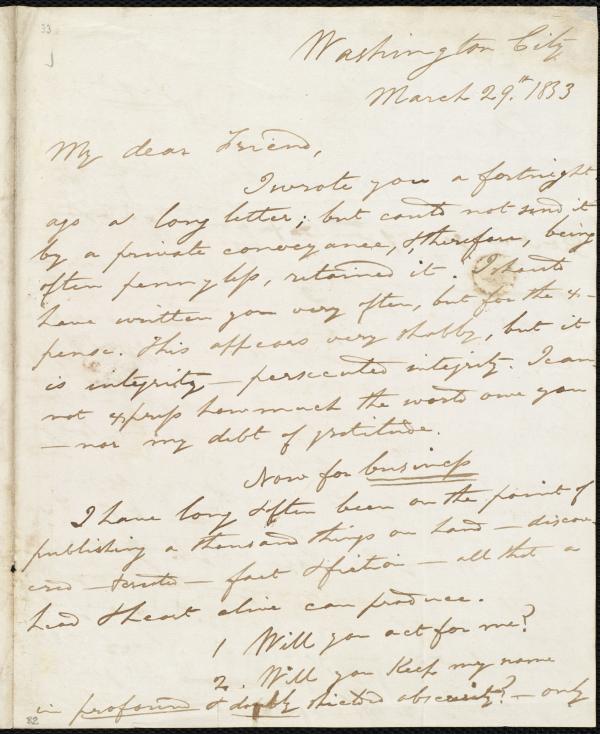 33
Washington City
March 29.th 1833
My dear Friend,
I wrote you a fortnight
ago a long letter; but could not send it
by a private conveyance, & therefore, being
often pennyless, retained it. I should
have written you very often, but for the ex-
pense. This appears very shabby, but it
is integrity — persecuted integrity. I can-
not express how much the world owe you
— nor my debt of gratitude.
Now for business
I have long & often been on the point of
publishing a thousand things on hand — discov-
ered — — fact & fiction — all that a
head & heart alive can produce.
1 Will you act for me?
2. Will you keep my name
in profound & doubly obscurity? — only
82